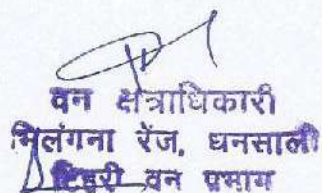 वन क्षेत्राधिकारी
भिलंगना रेंज, घनसाली
टिहरी वन प्रभाग